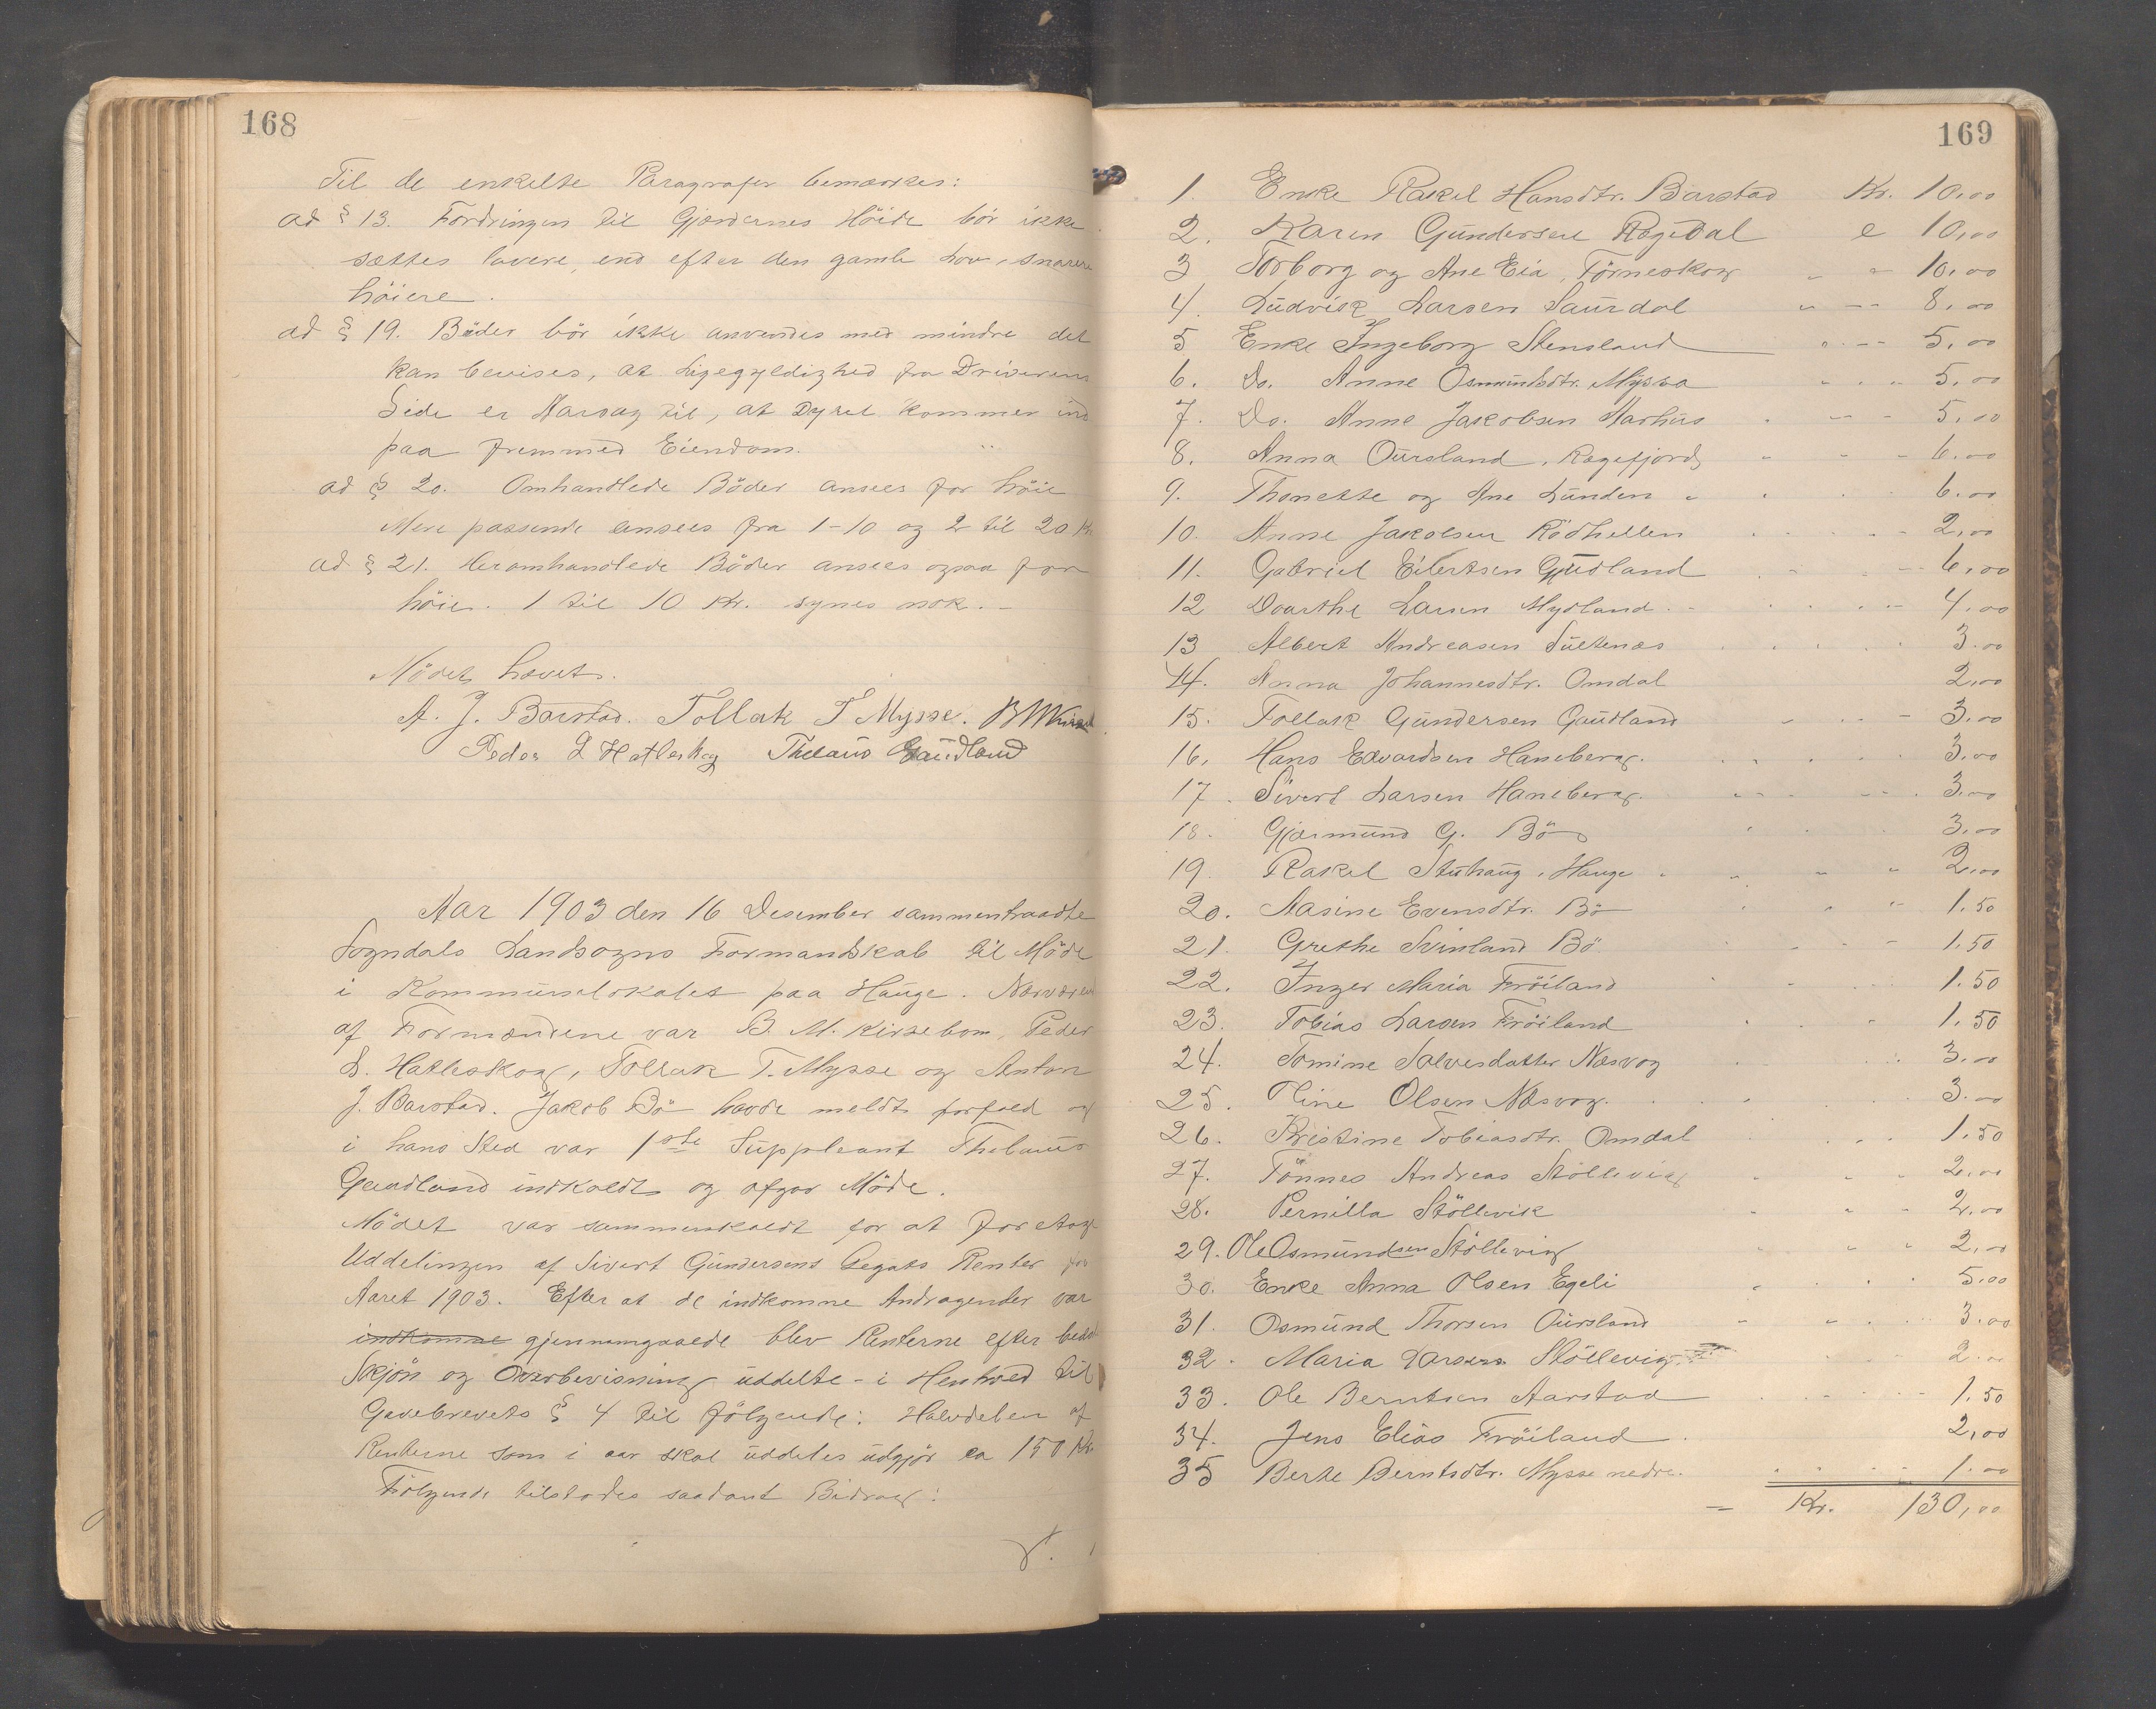 168
Til de enkelte Paragrafer bemærkes:
ad § 13. Fordringen til Gjærdernes Höide bör ikke
sættes lavere, end efter den gamle Lov, snarere
höiere.
ad § 19. Böder bör ikke anvendes med mindre det
kan bevises, at Ligegyldighed fra Driverens
Side er Aarsag til, at Dyret kommer ind
paa fremmed Eiendom.
ad § 20. Omhandlede Böder ansees for höie
Mere passende ansees fra 1-10 og 2 til 20 Kr
ad § 21. Heromhandlede Böder ansees ogsaa for
höie. 1 til 10 Kr. synes nok. -
Mödet hævet.
A. J. Barstad. Tollak T Mysse. B M Kirseb
Peder L Hatleskog Thelaus Gaudland
Aar 1903 den 16 Desember sammentraadte
Sogndals Landsogns Formandskab til Möde
i Kommunelokalet paa Hauge. Nærværend
af Formændene var B. M. Kirsebom, Peder
L. Hatleskog, Tollak T. Mysse og Anton
J. Barstad. Jakob Bö havde meldt forfald og
i hans Sted var 1ste Suppleant Thelaus
Gaudland indkaldt og afgav Möde.
Mödet var sammenkaldt for at foretage
Uddelingen af Sivert Gundersens Legats Renter for
Aaret 1903. Efter at de indkomne Andragender var
indkomne gjennemgaaede blev Renterne efter bedste
Skjön og Overbevisning uddelte - i Henhold til
Gavebrevets § 4 til fölgende: Halvdelen af
Renterne som i aar skal uddeles udgjör ca 150 Kr.
Fölgende tilstodes saadant Bidrag:
169
1. Enke Rakel Hansdtr. Barstad Kr. 10,00
2. Karen Gundersen Rægedal " 10,00
3 Torborg og Ane Eia, Törneskog " " 10,00
4. Ludvik Larsen Saurdal " - - 8,00
5 Enke Ingeborg Stensland " - - 5,00
6. Do. Anne Osmundsdtr. Myssa " " " 5,00
7. Do. Anne Jakobsen Aarhus " - - 5,00
8. Anna Oursland, Rægefjord " - - 6,00
9. Thonette og Ane Lunden " " " 6,00
10. Anne Jakobsen Rödhellen 2,00
11. Gabriel Eilertsen Gudland 6,00
12 Doarthe Larsen Mydland 4,00
13 Albert Andreasen Sultenæs 3,00
14. Anna Johannesdtr. Omdal 2,00
15. Tollak Gundersen Gaudland 3,00
16. Hans Edvardsen Haneberg. 3,00
17. Sivert Larsen Haneberg. 3,00
18. Gjærmund G. Bö 3,00
19. Rakel Stuhaug, Hauge " " " " 2,00
20. Aasine Evensdtr. Bö 1.50
21. Grethe Svinland Bö. 1.50
22. Inger Maria Fröiland 1.50
23. Tobias Larsen Fröiland 1.50
24. Tomine Salvesdatter Næsvog 3.00
25. Pline Olsen Næsvog. 3.00
26. Kristine Tobiasdtr. Omdal 1.50
27. Tönnes Andreas Stöllevig 2,00
28. Pernilla Stöllevik 2,00
29. Ole Osmundsen Stöllevig 2,00
30. Enke Anna Olsen Egeli 5.00
31. Osmund Thorsen Oursland 3.00
32. Maria Larsen Stöllevig 2.00
33. Ole Berntsen Aarstad 1.50
34. Jens Elias Fröiland 2,00
35 Berte Berntsdtr. Mysse nedre. 1.00
= Kr. 130,00